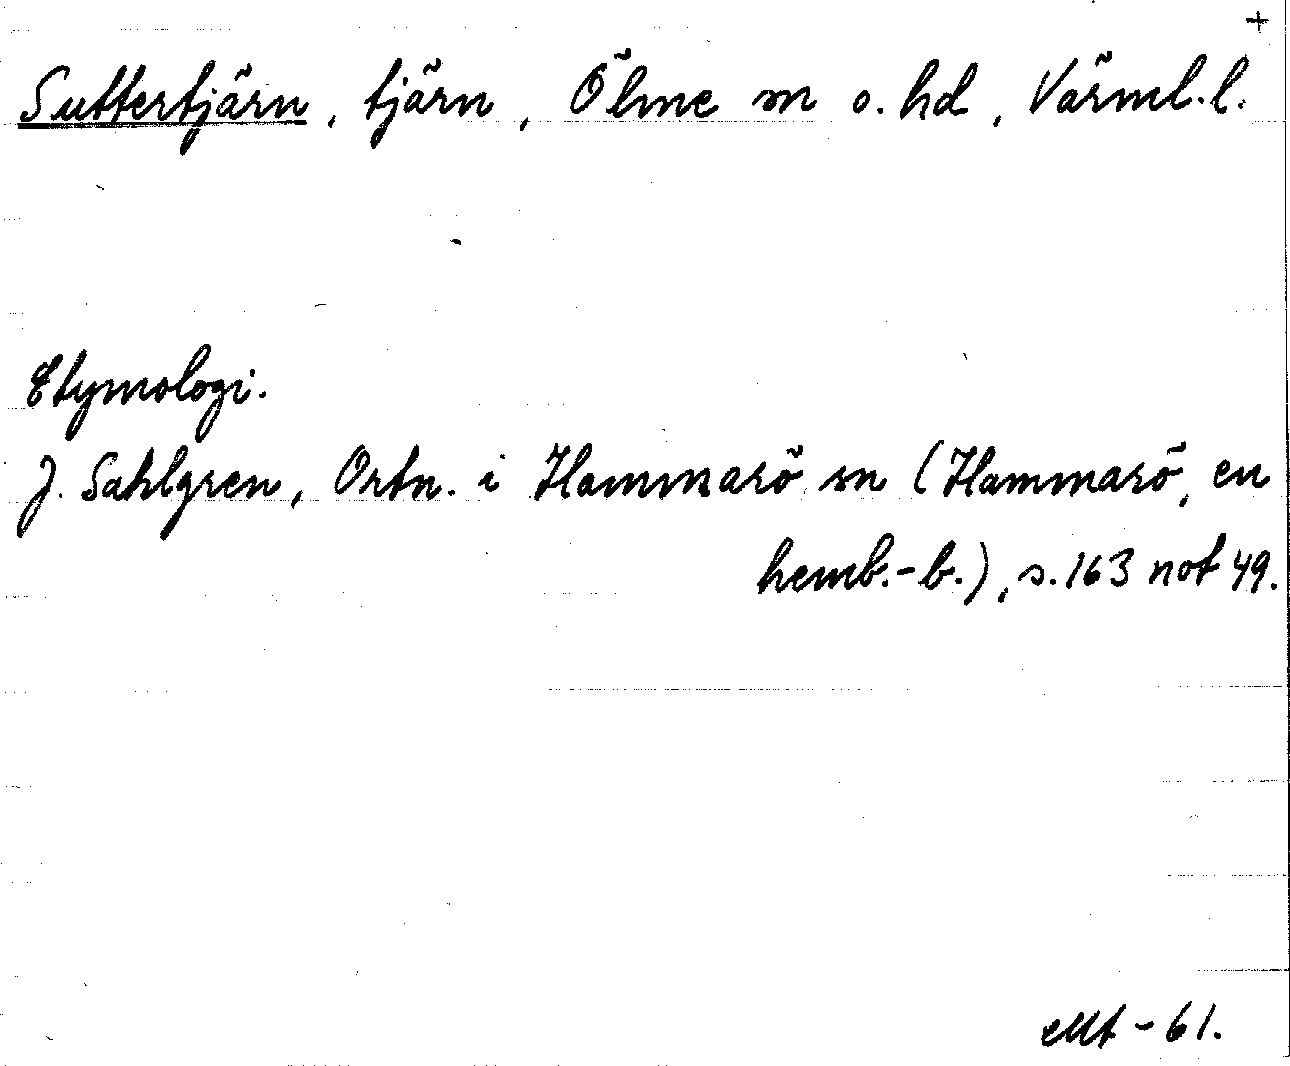 +
Suttertjärn, tjärn, Ölme sn o. hd, Värml. l.
Etymologi.
J. Sahlgren, Ortn. i Hammarö sn (Hammarö, en
hemb.-b.), s. 163 not 49.
Mt - 61.